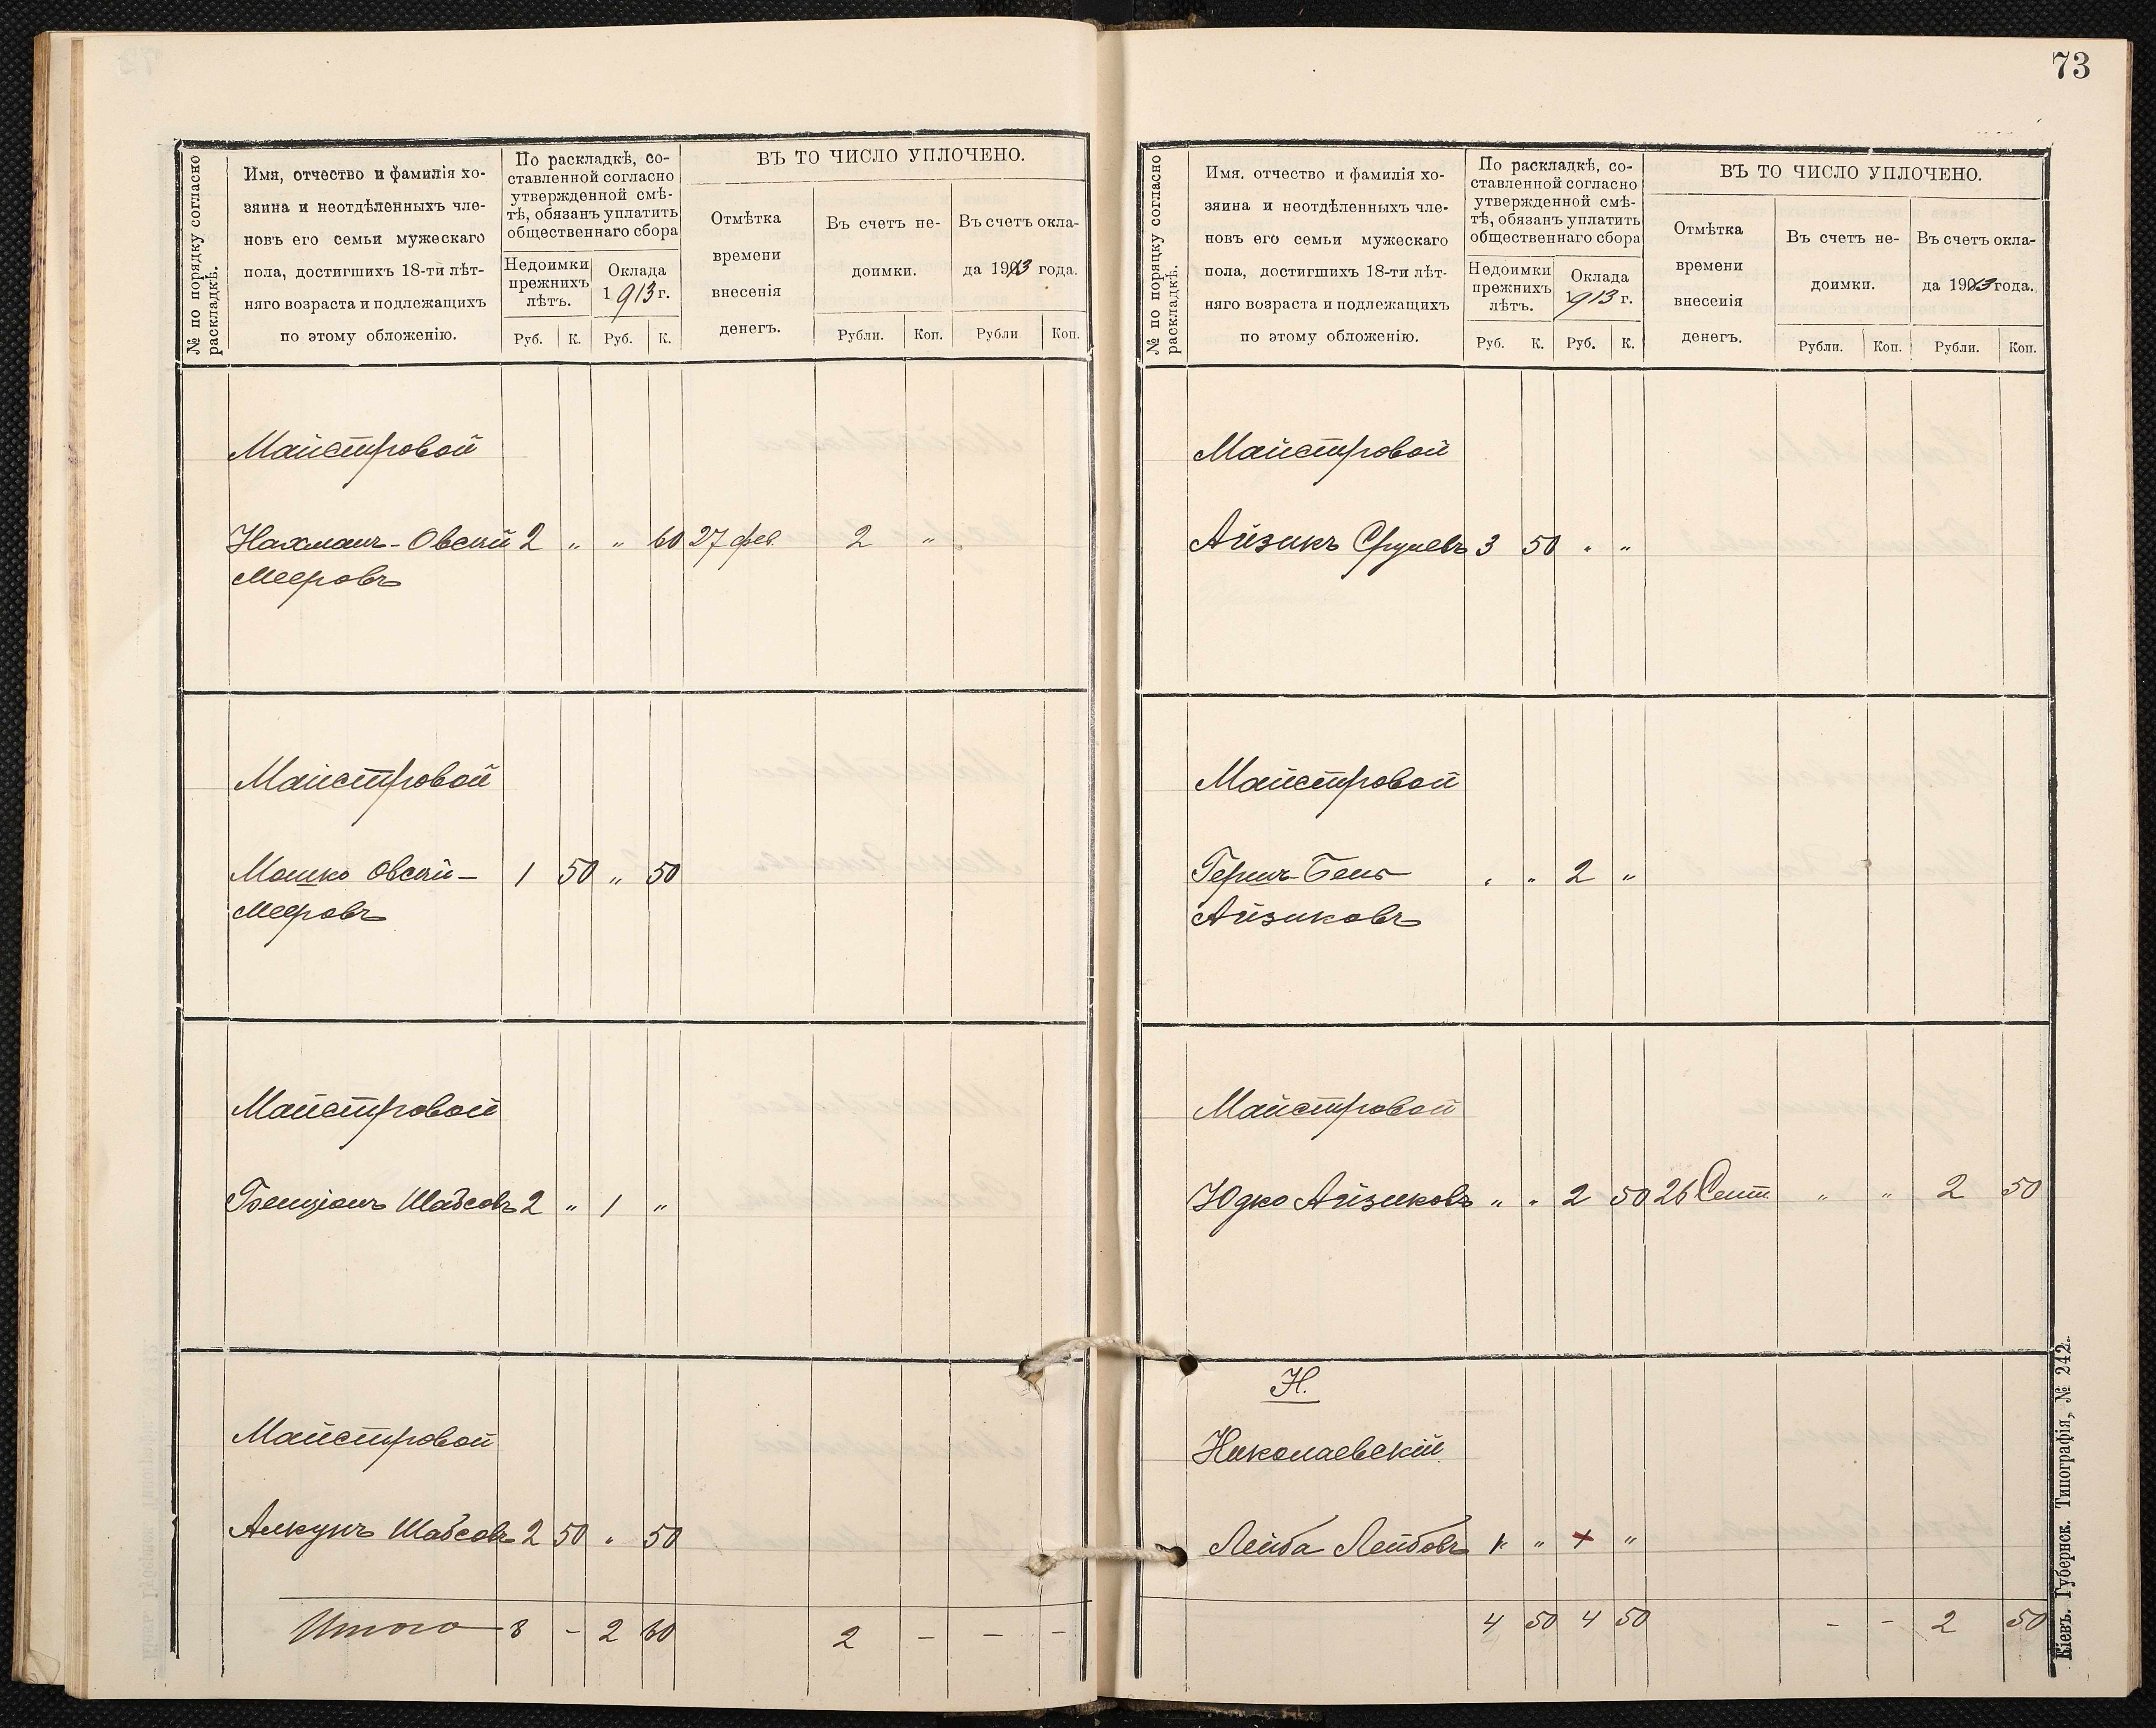 73
№ по порядку согласно
раскладкѣ.
Имя, отчество и фамилія хо-
зяина и неотдѣленныхъ чле-
новъ его семьи мужескаго
пола, достигшихъ 18-ти лѣт-
няго возраста и подлежащихъ
по этому обложенію.
По раскладкѣ, со-
ставленной согласно
утвержденной смѣ-
тѣ, обязанъ уплатить
общественнаго сбора
Недоимки
прежнихъ
лѣтъ.
Оклада
1913 г.
Руб. К. Руб. К.
ВЪ ТО ЧИСЛО УПЛОЧЕНО.
Отмѣтка
времени
внесенія
денегъ.
Въ счетъ не-
доимки.
Въ счетъ окла-
да 1913 года.
Рубли. Коп. Рубли Коп.
Майстровой
Нахманъ-Овсей 2 " " 60 27 фев. 2 "
Мееровъ
Майстровой
Мошко Овсей- 1 50 " 50
Мееровъ
Майстровой
Бенціонъ Шабсовъ 2 " 1 "
Майстровой
Алкунъ Шабсовъ 2 50 " 50
Итого 8 - 2 60 2 - - -
№ по порядку согласно
раскладкѣ.
Имя. отчество и фамилія хо-
зяина и неотдѣленныхъ чле-
новъ его семьи мужескаго
пола, достигшихъ 18-тихъ лѣт-
няго возраста и подлежащихъ
по этому обложенію.
По раскладкѣ, со-
ставленной согласно
утвержденной смѣ-
тѣ, обязанъ уплатить
общественнаго сбора
Недоимки
прежнихъ
лѣтъ.
Оклада
1913 г.
Руб. К. Руб. К.
ВЪ ТО ЧИСЛО УПЛОЧЕНО.
Отмѣтка
времени
внесенія
денегъ.
Въ счетъ не-
доимки.
Въ счетъ окла-
да 1913 года.
Рубли. Коп. Рубли. Коп.
Майстровой
Айзикъ Сруневъ 3 50 " "
Майстровой
Гершъ-Бень " " 2 "
Айзиковъ
Майстровой
Юдко Айзиковъ " " 2 50 26 Сент " " 2 50
Н.
Николаевскій
Лейба Лейбовъ 1 " + "
4 50 4 50 - - 2 50
Кіевъ. Губернск. Типографія, № 242.